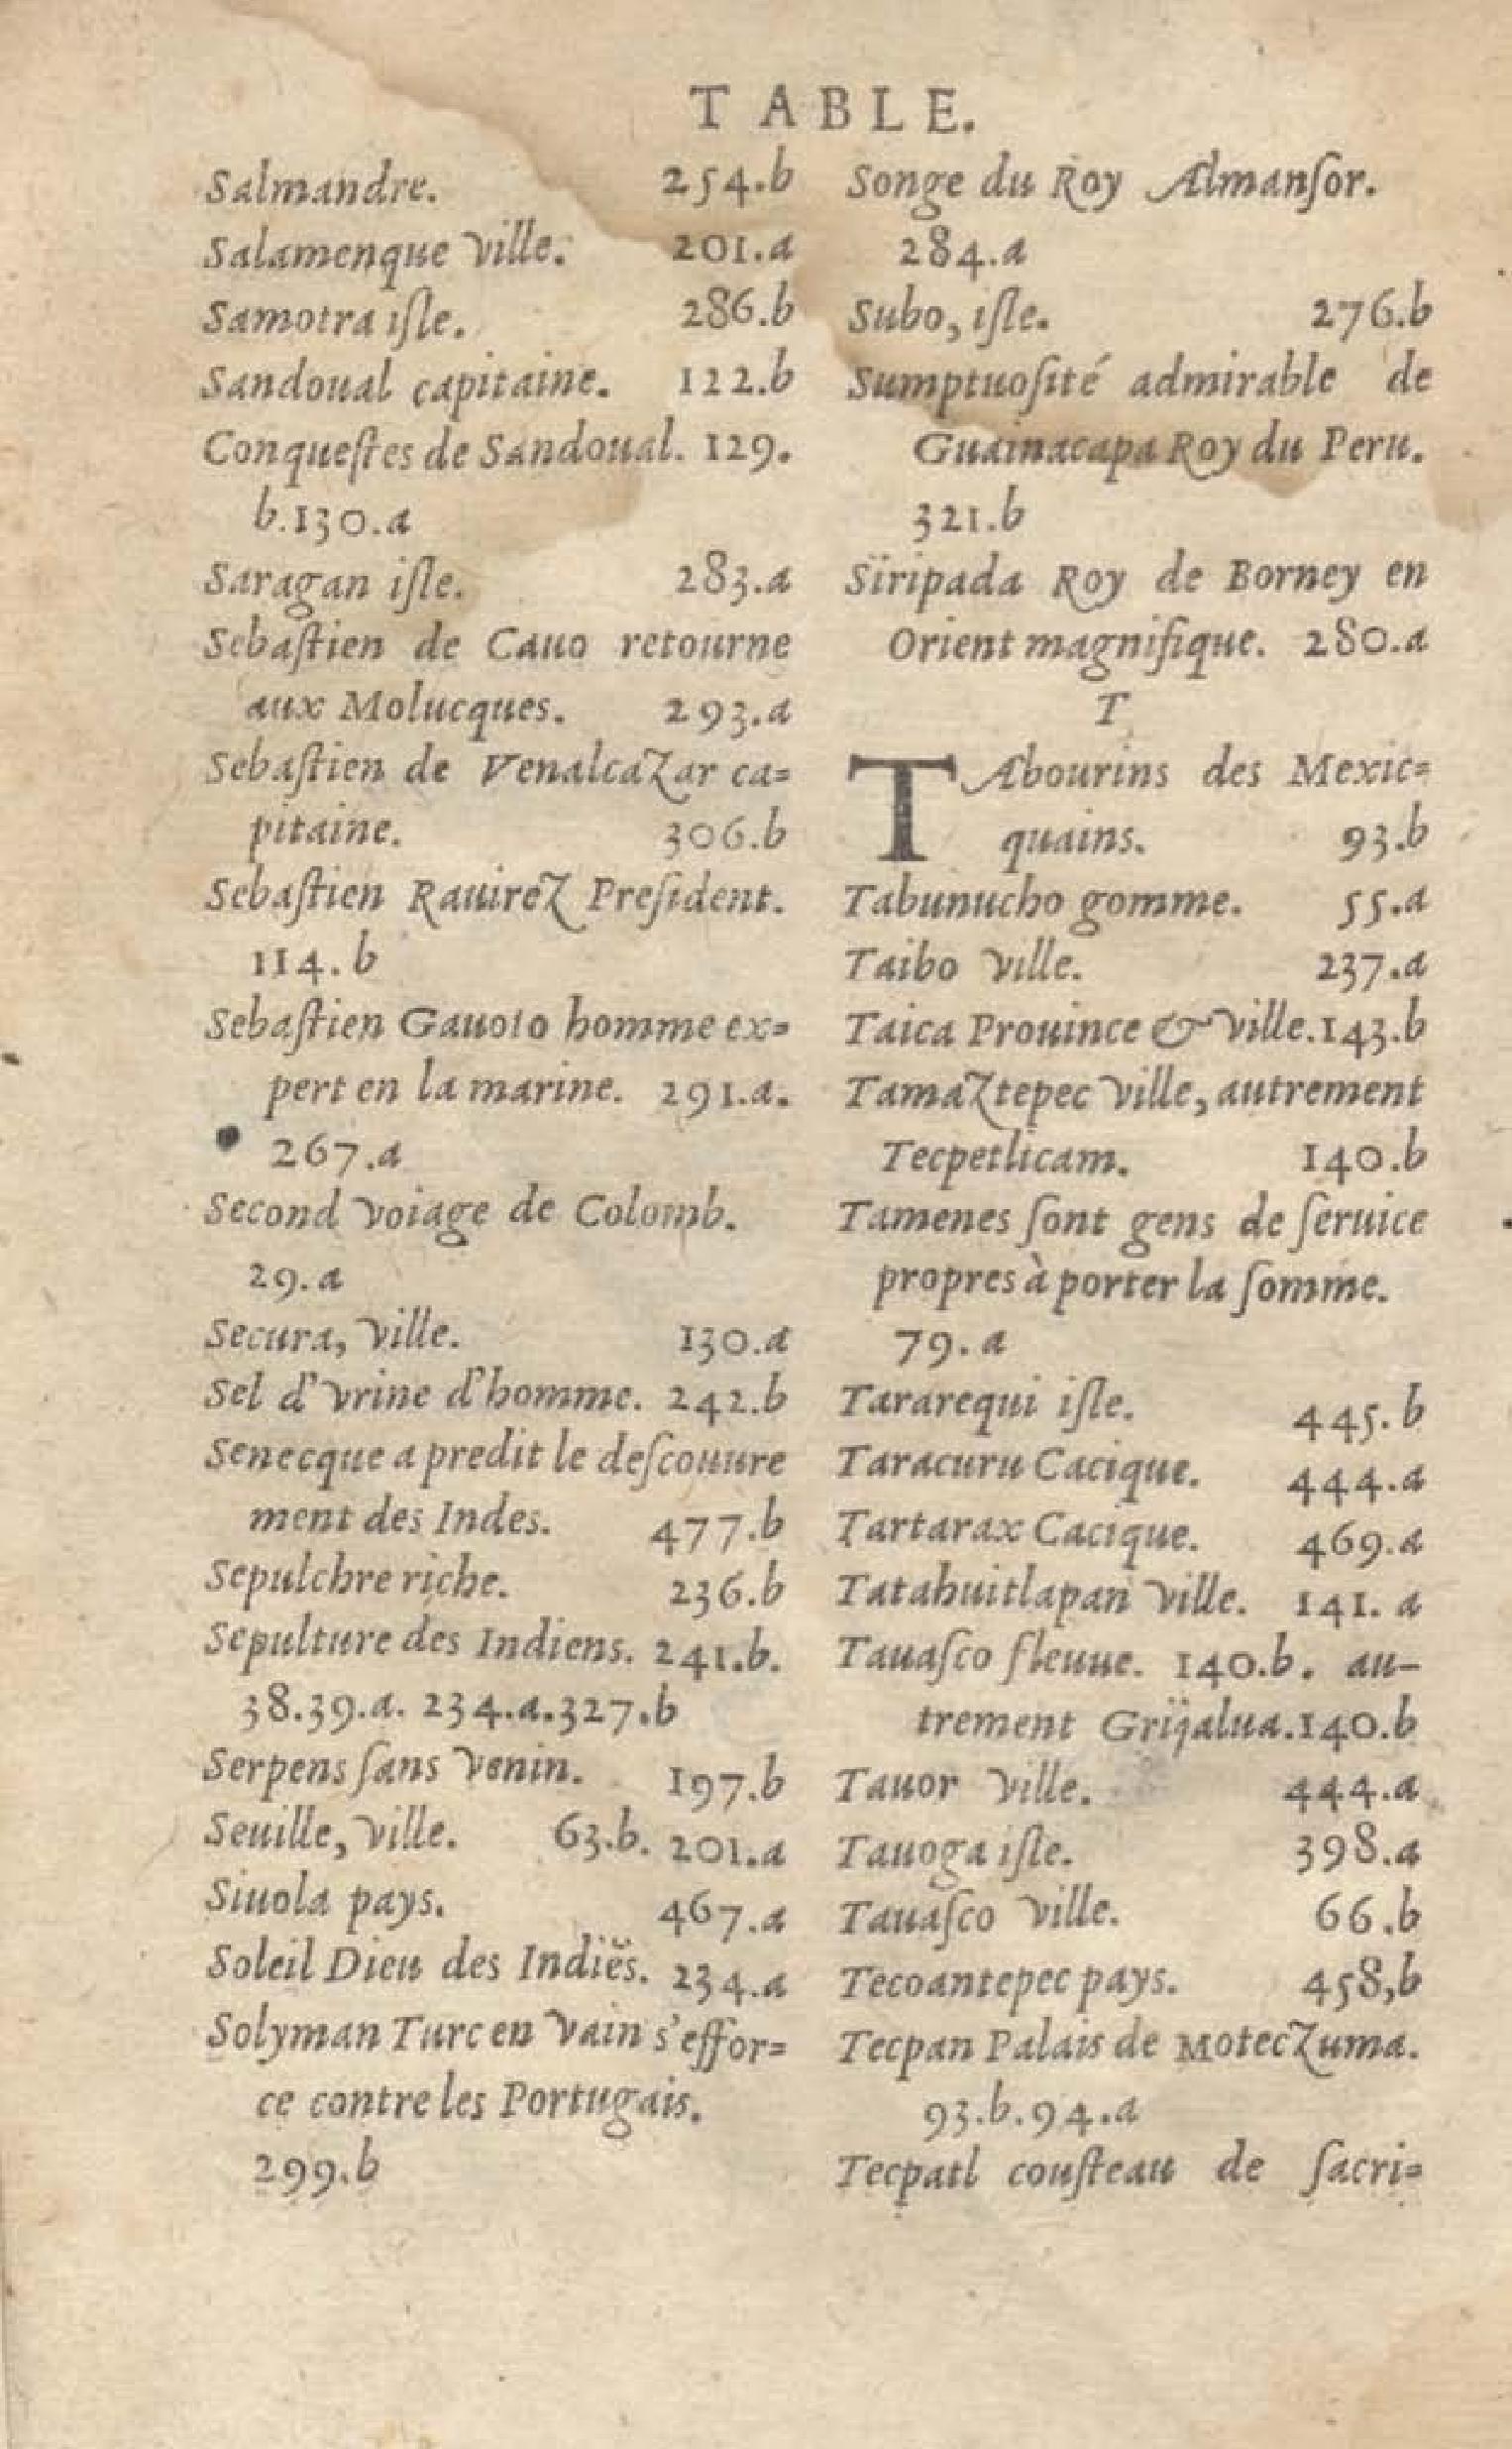 TABLE.
Salmandre. 254.b
Salamenque ville. 201.a
Samotra iſle. 286.b
Sandoual capitaine. 122.b
Conqueſtes de Sandoual. 129.
b.130.a
Saragan iſle. 283.a
Sebaſtien de Cauo retourne
aux Molucques. 293.a
Sebaſtien de Venalcazar ca=
pitaine. 306.b
Sebaſtien Rauirez Preſident.
114.b
Sebaſtien Gauoto homme ex=
pert en la marine. 291.a.
267.a
Second voiage de Colomb.
29.a
Secura, ville. 130.a
Sel d'vrine d'homme. 242.b
Senecque a predit le deſcouure
ment des Indes. 477.b
Sepulchre riche. 236.b
Sepulture des Indiens. 241.b.
38.39.a. 234.a.327.b
Serpens ſans venin. 197.b
Seuille, ville. 63.b. 201.a
Siuola pays. 467.a
Soleil Dieu des Indiēs. 234.a
Solyman Turc en vain s'effor=
ce contre les Portugais.
299.b
Songe du Roy Almanſor.
284.a
Subo, iſle. 276.b
Sumptuoſité admirable de
Guainacapa Roy du Peru.
321.b
Siripada Roy de Borney en
Orient magnifique. 280.a
T
TAbourins des Mexic=
quains. 93.b
Tabunucho gomme. 55.a
Taibo ville. 237.a
Taica Prouince & ville. 143.b
Tamaztepec ville, autrement
Tecpetlicam. 140.b
Tamenes ſont gens de ſeruice
propres à porter la ſomme.
79.a
Tararequi iſle. 445.b
Taracuru Cacique. 444.a
Tartarax Cacique. 469.a
Tatahuitlapan ville. 141.a
Tauaſco fleuue. 140.b. au-
trement Grijalua. 140.b
Tauor ville. 444.a
Tauoga iſle. 398.a
Tauaſco ville. 66.b
Tecoantepec pays. 458,b
Tecpan Palais de Moteczuma.
93.b.94.a
Tecpatl couſteau de ſacri=